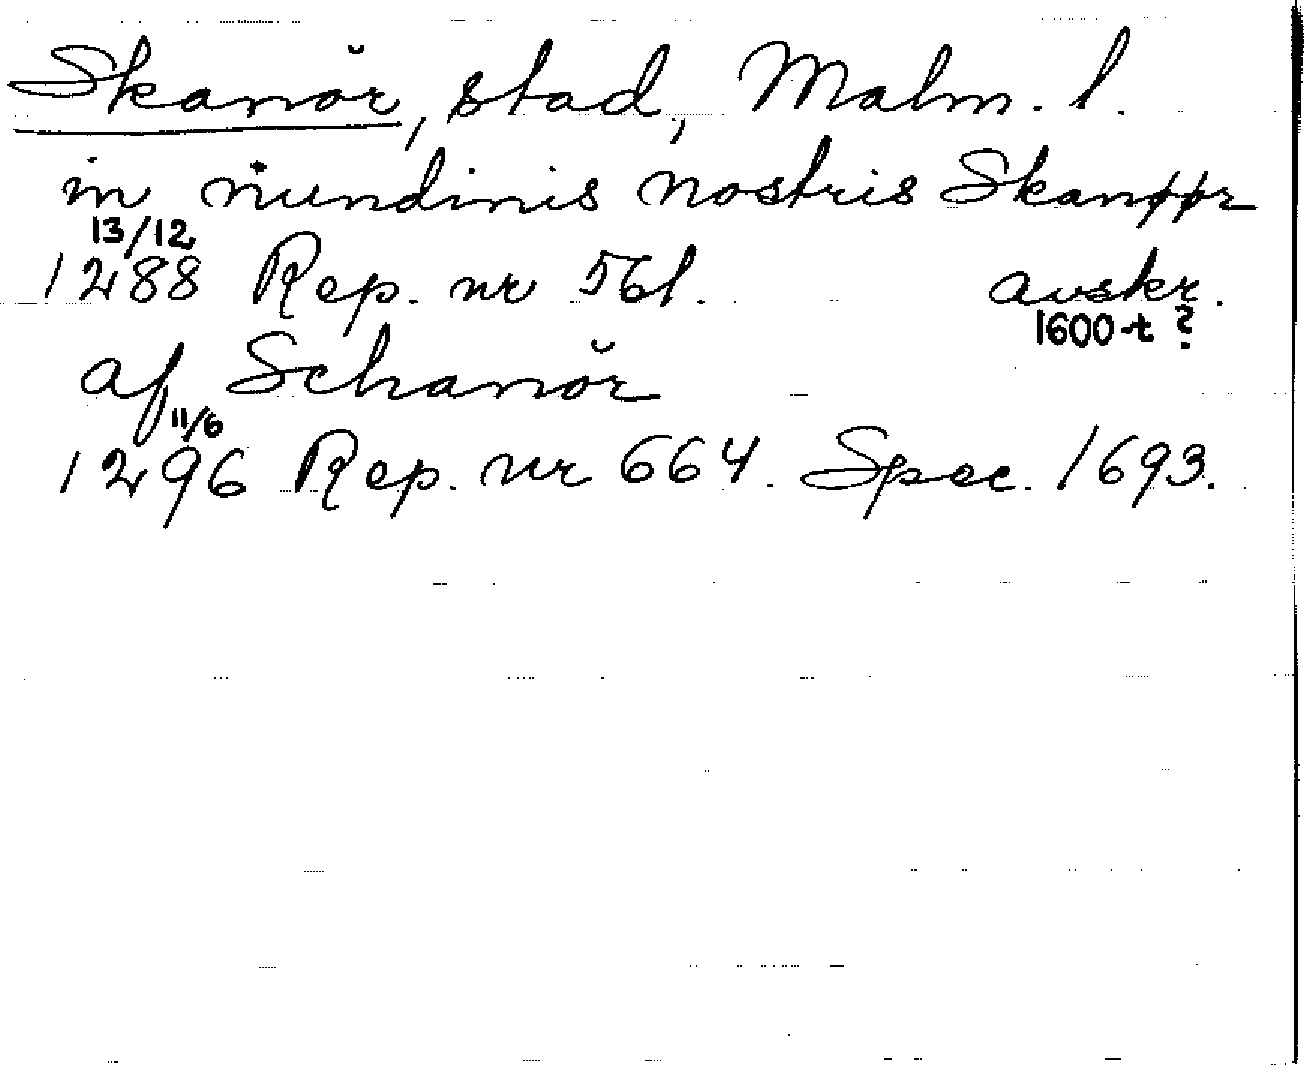 Skanör, stad, Malm. l.
in nundinis nostris Skanøør
13/12
1288 Rep. nr 561. avskr.
1600-t ?
af Schanör
11/6
1296 Rep. nr 664. Spec. 1693.